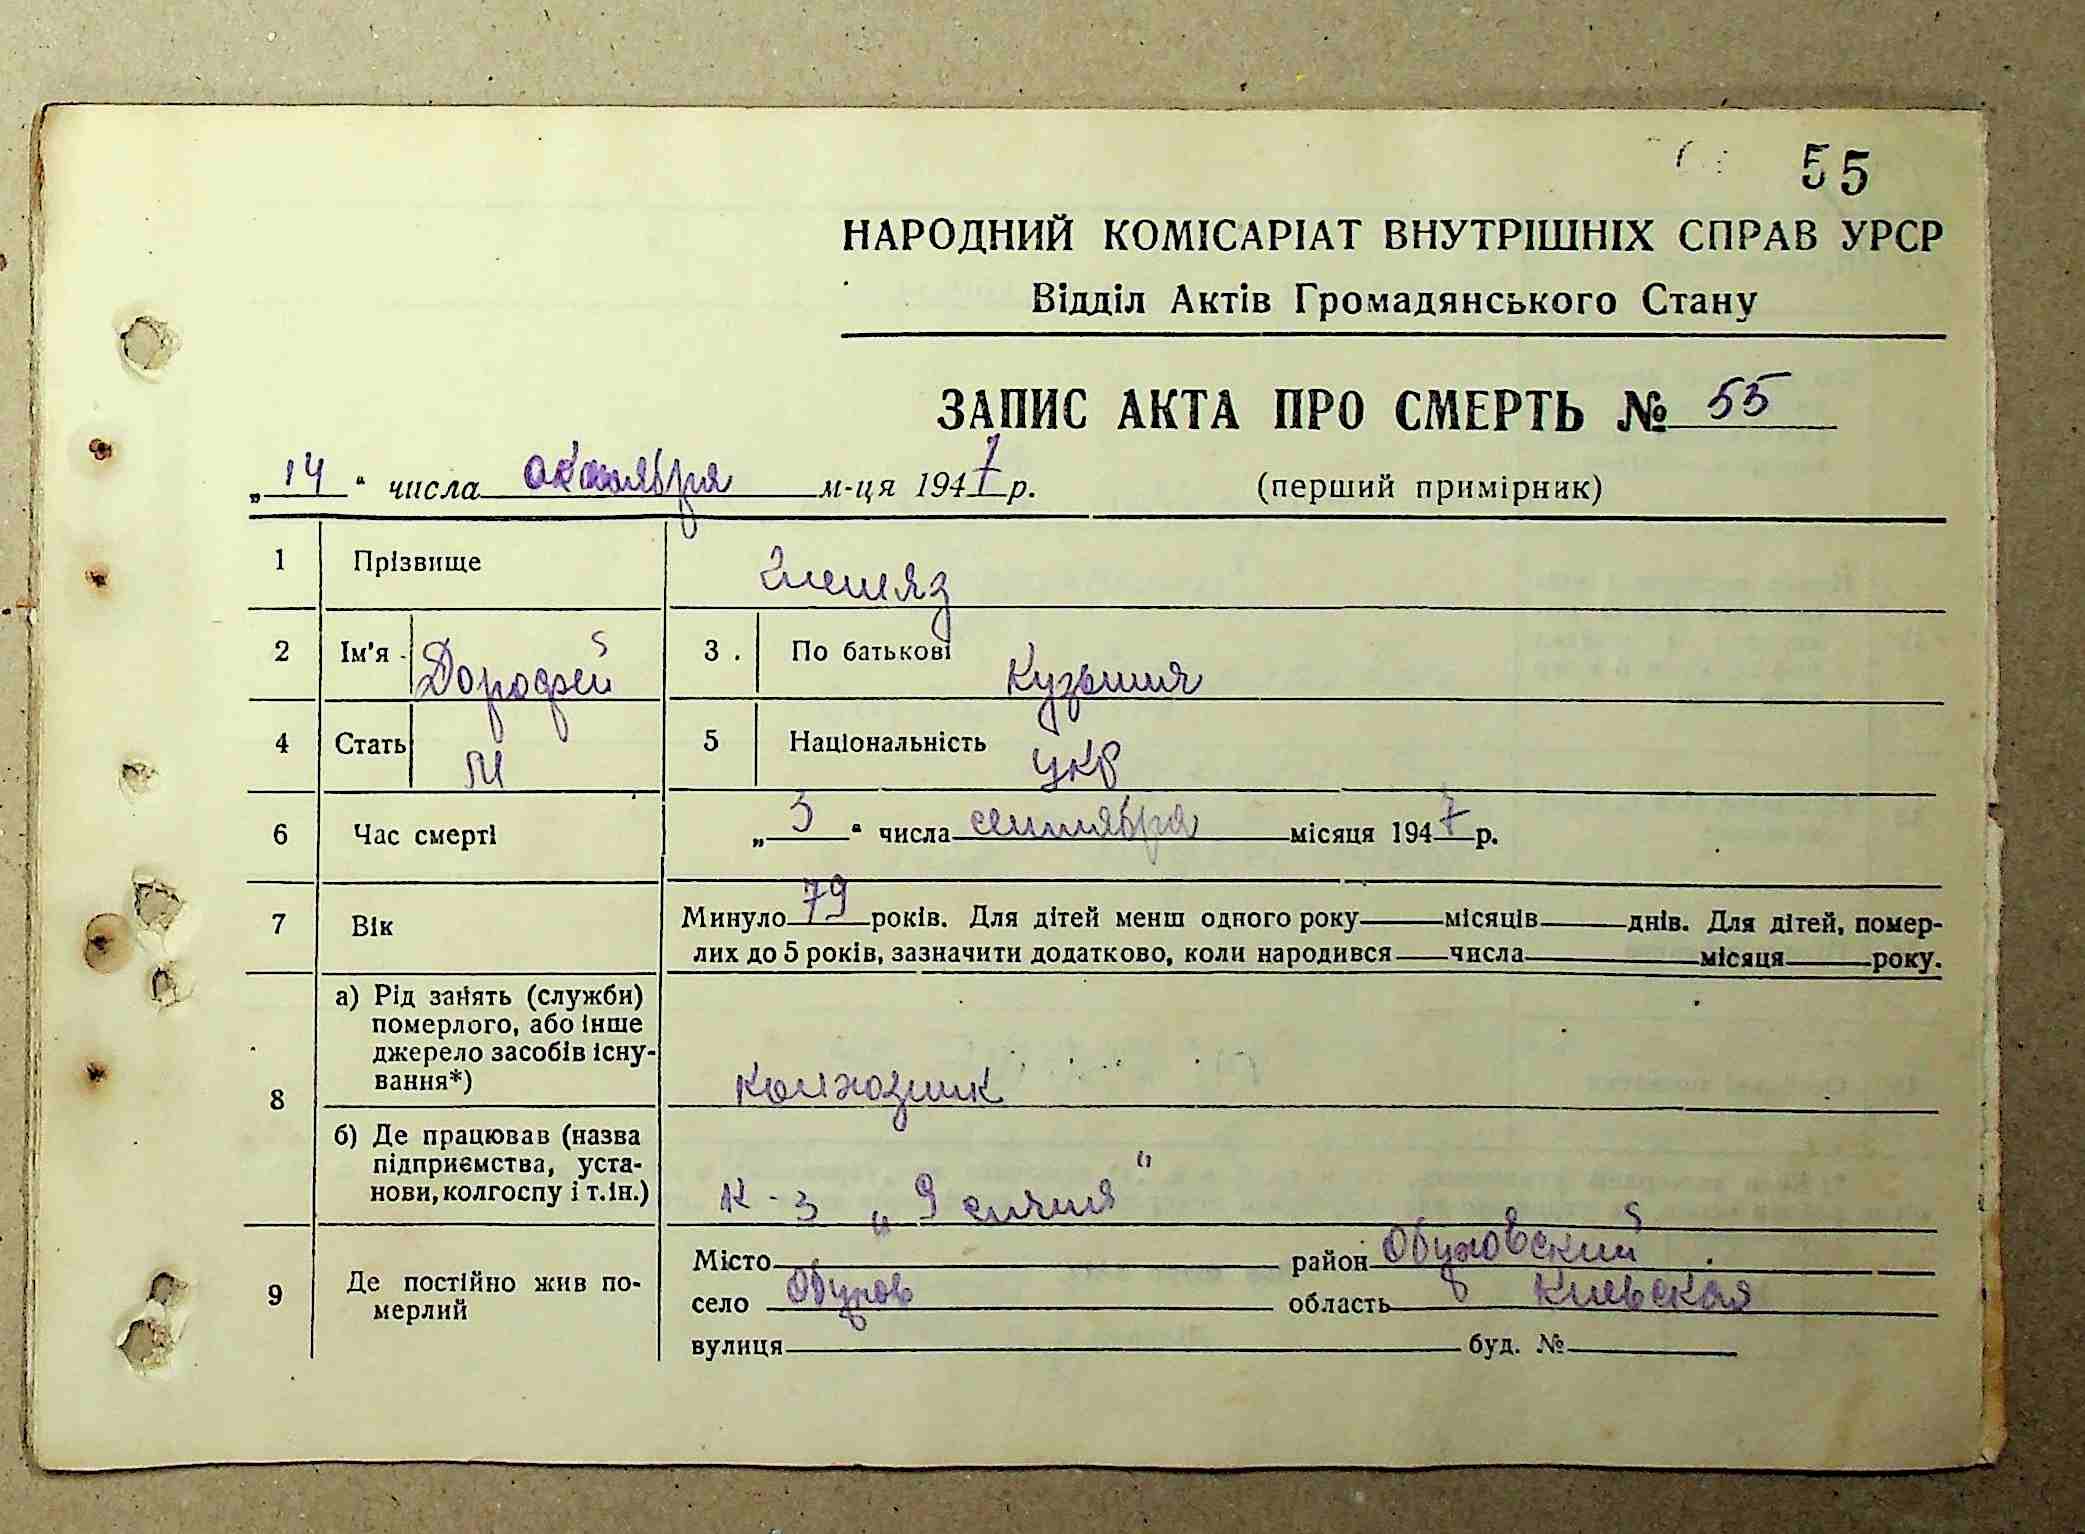 55
НАРОДНИЙ КОМІСАРІАТ ВНУТРІШНІХ СПРАВ УРСР
Відділ Актів Громадянського Стану
ЗАПИС АКТА ПРО СМЕРТЬ № 55
„14“ числа октября м-ця 1947 р.
(перший примірник)
1 Прізвище
2 Ім'я Дорофей 3. По батькові
4 Стать М 5 Національність укр
6 Час смерті „3“ числа сентября місяця 1947 р.
7 Вік Минуло 79 років. Для дітей менш одного року місяців днів. Для дітей, помер-
лих до 5 років, зазначити додатково, коли народився числа місяця року.
8 а) Рід занять (служби)
померлого, або інше
джерело засобів існу-
вання*) колхозник
б) Де працював (назва
підприємства, уста-
нови, колгоспу і т. ін.) К-з „9 січня"
9 Де постійно жив по-
мерлий
Місто район Обуховский
село Обухов область Киевская
вулиця буд. №